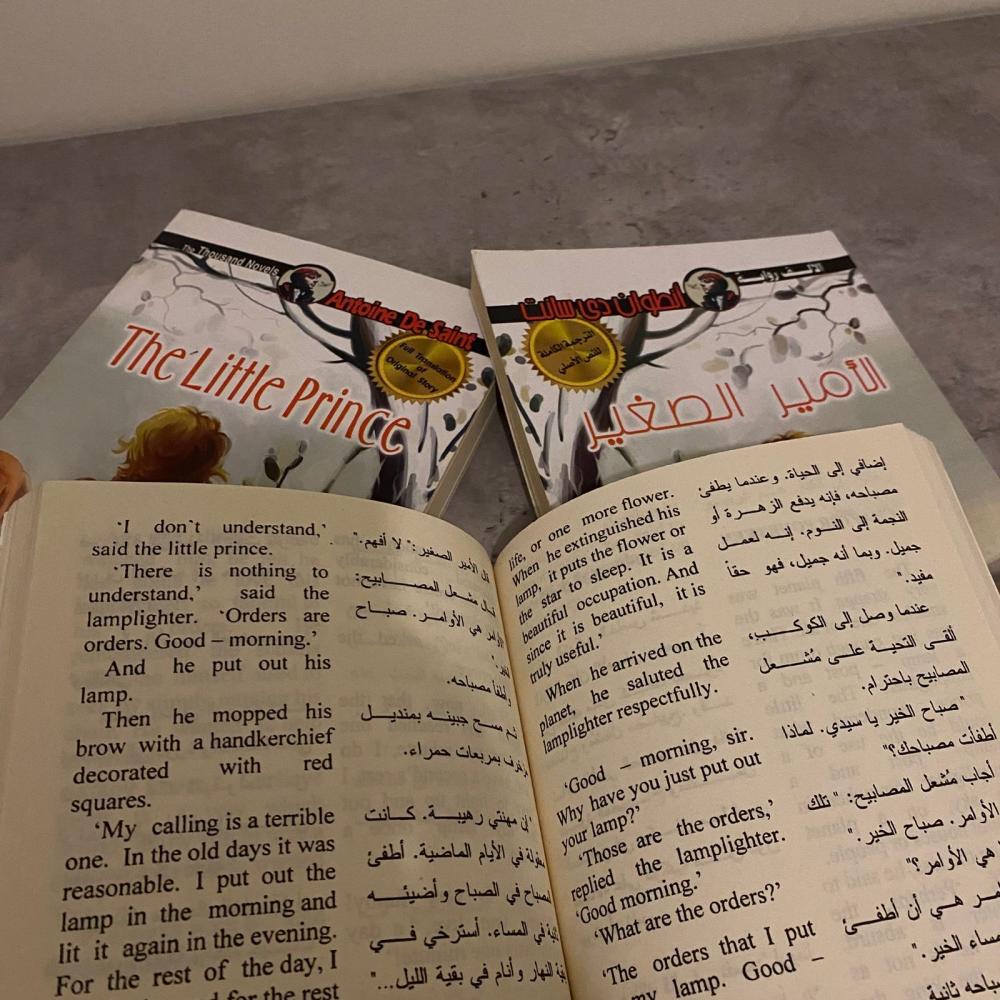 The Thousand Novels
Antoine De Saint
Full Translation
of
Original Story
The Little Prince
الألف رواية
أنطوان دي سانت
الترجمة الكاملة
للنص الأصلي
الأمير الصغير
life, or one more flower.
When he extinguished his
lamp, it puts the flower or
the star to sleep. It is a
beautiful occupation. And
since it is beautiful, it is
truly useful.’
When he arrived on the
planet, he saluted the
lamplighter respectfully.
‘Good – morning, sir.
Why have you just put out
your lamp?’
‘Those are the orders,’
replied the lamplighter.
‘Good morning.’
‘What are the orders?’
‘The orders that I put
my lamp. Good –
إضافي إلى الحياة. وعندما يطفئ
مصباحه، فإنه يدفع الزهرة أو
النجمة إلى النوم. إنه لعمل
جميل. وبما أنه جميل، فهو حقاً
مفيد."
عندما وصل إلى الكوكب،
ألقى التحية على مُشعل
المصابيح باحترام.
"صباح الخير يا سيدي. لماذا
أطفأت مصباحك؟"
أجاب مُشعل المصابيح: "تلك
الأوامر. صباح الخير."
هي الأوامر؟"
هي أن أطفئ
مساء الخير."
ثانية
‘I don`t understand,’
said the little prince.
‘There is nothing to
understand,’ said the
lamplighter. ‘Orders are
orders. Good – morning.’
And he put out his
lamp.
Then he mopped his
brow with a handkerchief
decorated with red
squares.
‘My calling is a terrible
one. In the old days it was
reasonable. I put out the
lamp in the morning and
lit it again in the evening.
For the rest of the day, I
for the rest
قال الأمير الصغير: "لا أفهم."
قال مشعل المصابيح:
هي الأوامر. صباح
وأطفأ مصباحه.
ثم مسح جبينه بمنديل
بمربعات حمراء.
"إن مهنتي رهيبة. كانت
في الأيام الماضية. أطفئ
في الصباح وأضيئه
في المساء. أسترخي في
النهار وأنام في بقية الليل..."